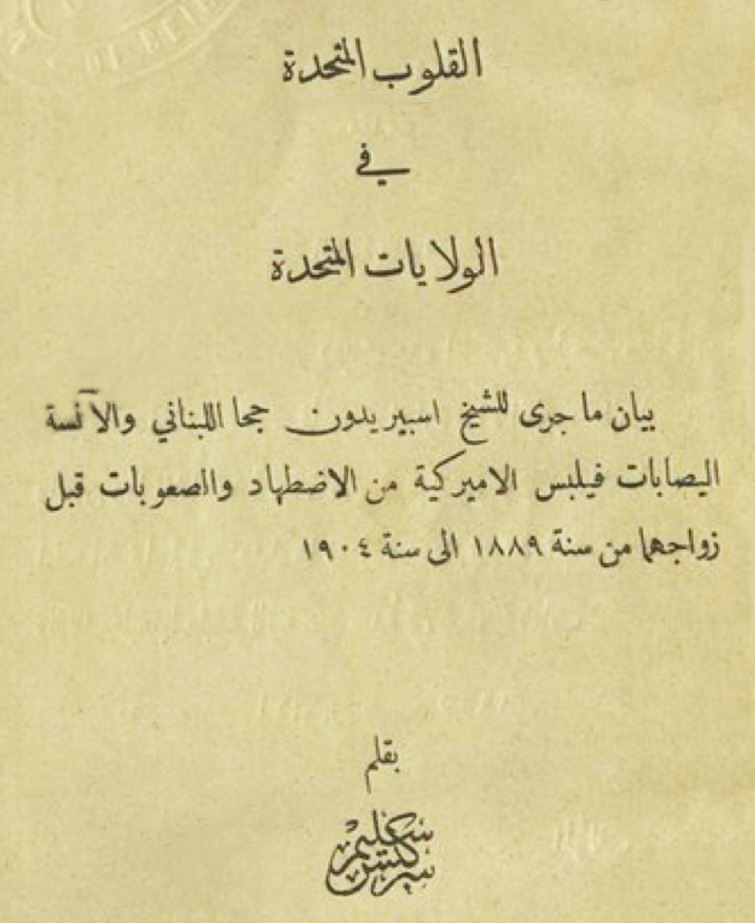 القلوب المتحدة
في
الولايات المتحدة
بيان ما جرى للشيخ اسبيريدون جحا اللبناني والآنسة
اليصابات فيلبس الاميركية من الاضطهاد والصعوبات قبل
زواجهما من سنة ١٨٨٩ الى سنة ١٩٠٤
بقلم
سليم سركيس